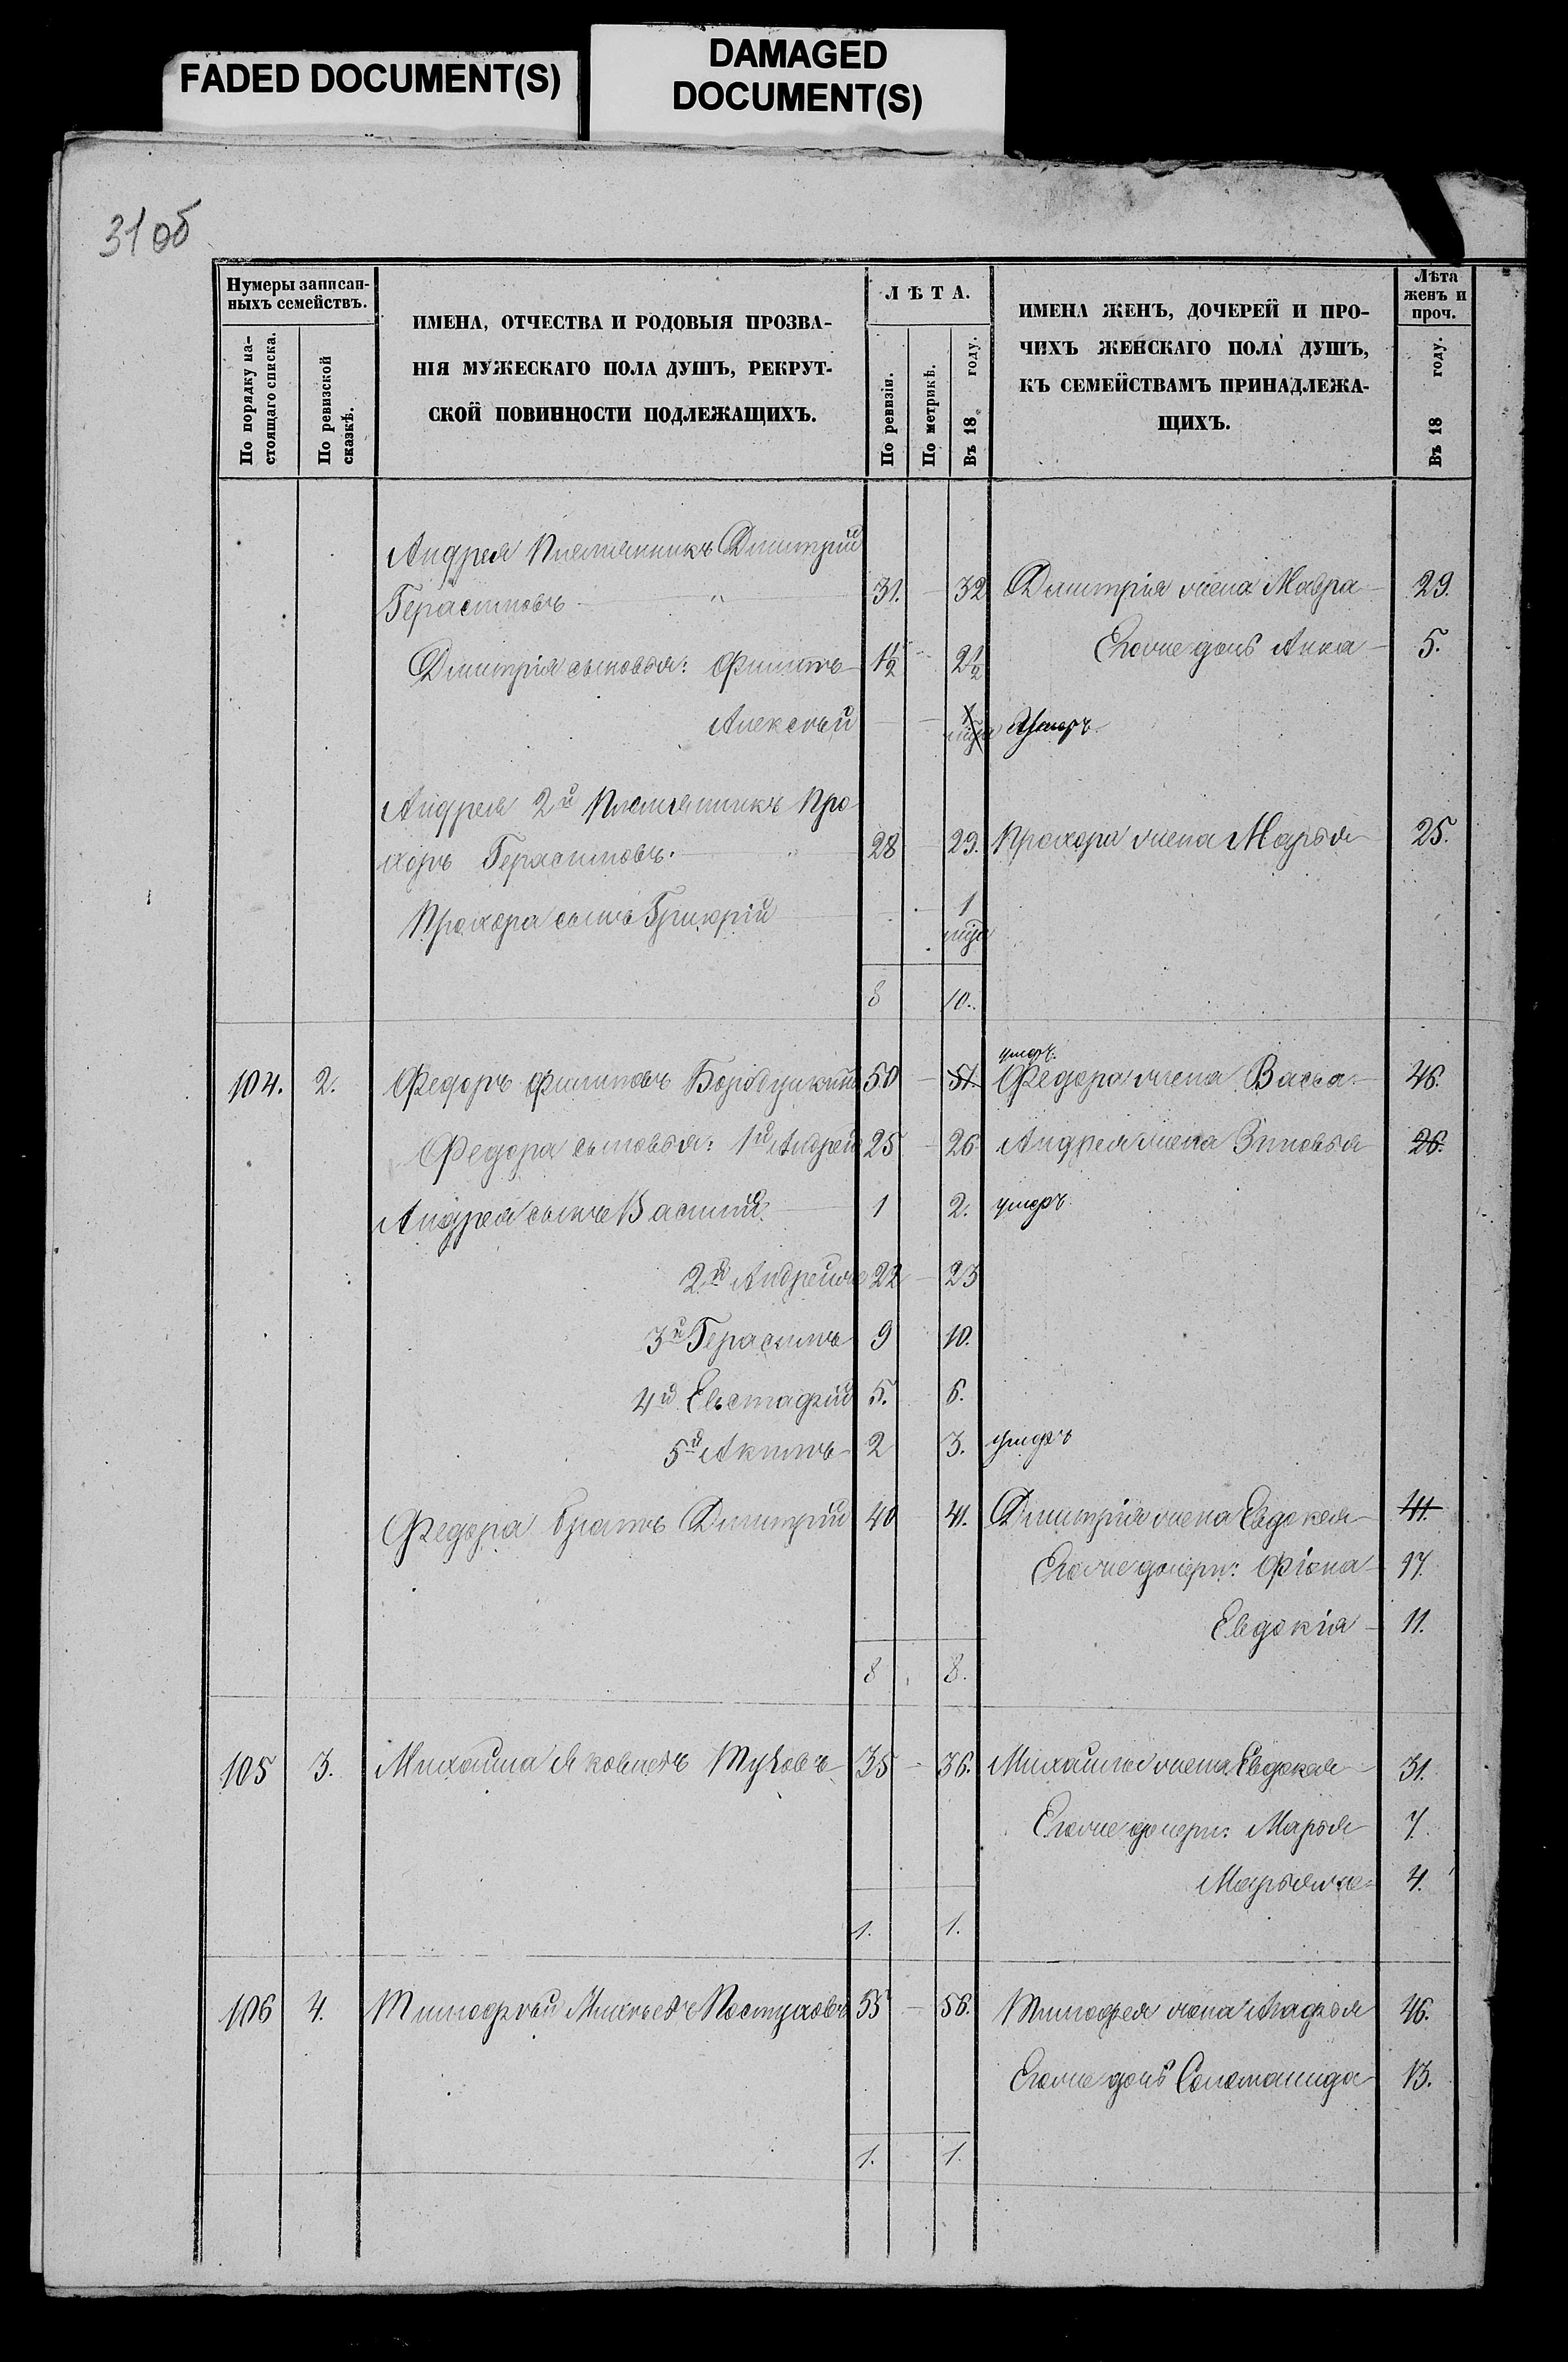 FADED DOCUMENT(S)
DAMAGED
DOCUMENT(S)
31 об
Нумеры записан-
ныхъ семействъ.
По порядку на-
стоящаго списка.
По ревизской
сказкѣ.
ИМЕНА, ОТЧЕСТВА И РОДОВЫЯ ПРОЗВА-
НІЯ МУЖЕСКАГО ПОЛА ДУШЪ, РЕКРУТ-
СКОЙ ПОВИННОСТИ ПОДЛЕЖАЩИХЪ.
ЛѢТА.
По ревизіи.
По метрикѣ.
Въ 18 году.
ИМЕНА ЖЕНЪ, ДОЧЕРЕЙ И ПРО-
ЧИХЪ ЖЕНСКАГО ПОЛА ДУШЪ,
КЪ СЕМЕЙСТВАМЪ ПРИНАДЛЕЖА-
ЩИХЪ.
Лѣта
женъ и
проч.
Въ 18 году.
Андрея племянникъ Дмитрій
Герасимовъ 31. 32 Дмитрія жена Мавра 29.
Его же дочь Анна 5.
Дмитрія сыновья: Филипъ 1½ 2½
Алексѣй 1 умеръ
Андрея 2й племянникъ Про
хоръ Герасимовъ. 28 29. Прохора жена Марья 25.
Прохора сынъ Григорій 1
8 10.
умеръ.
104. 2. Федоръ Филиповъ 50 51. Федора жена Васса 46.
Федора сыновья: 1й Андрей 25 26 Андрея жена Зиновья 26.
Андрея сынъ Василій 1 2. умеръ
2й Андреянъ 22 23
3й Герасимъ 9 10.
4й Евстафій 5. 6.
5й Акимъ 2 3. умеръ
Федора братъ Дмитрій 40 41. Дмитрія жена Евдокея 41.
Его же дочери: Фіона 17.
Евдокія 11.
8 8.
105 3. Михайла Яковлевъ 35 36. Михайлы жена Евдокея 31.
Его же дочери: Марья 7.
Марьяна 4.
1. 1.
106 4. Тимофѣй Пастуховъ 55 56. Тимофея жена Агафья 46.
Его же дочь Соломанида 13.
1. 1.